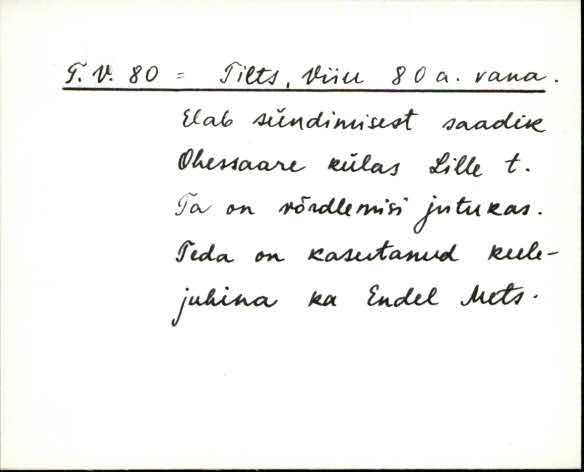 T. V. 80 = Tilts, Viiu 80 a. vana.
Elab sündimisest saadik
Ohessaare külas Lille t.
Ta on võrdlemisi jutukas.
Teda on kasutanud keele-
juhina ka Endel Mets.